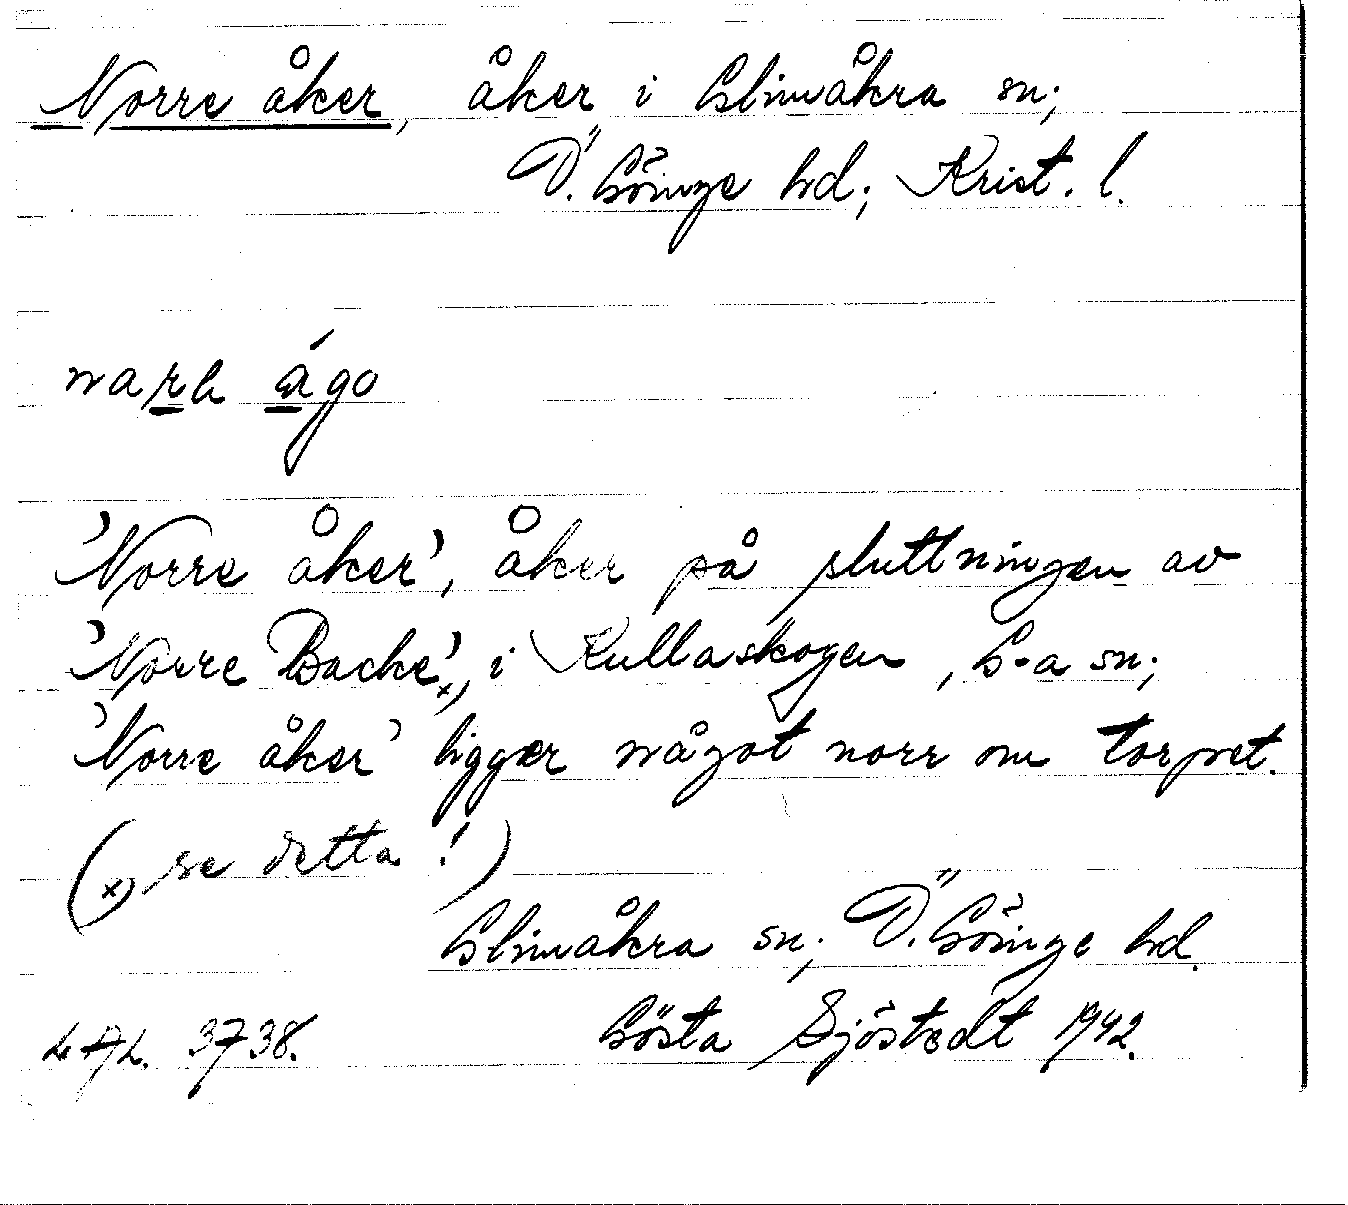 Norre åker, åker i Glimåkra sn;
Ö. Göinge hd; Krist. l.
'Norre åker', åker på sluttningen av
'Norre Backe'x), i Kullaskogen, G-a sn;
'Norre åker' ligger något norr om torpet.
(x) se detta!)
Glimåkra sn; Ö. Göinge hd.
L A L. 3738. Gösta Sjöstedt 1942.